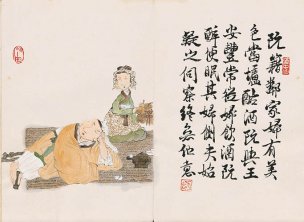 阮籍鄰家婦有美
色當壚酤酒阮與王
安豐常從婦飲酒阮
醉便眠其婦側夫始
疑之伺察終無他意